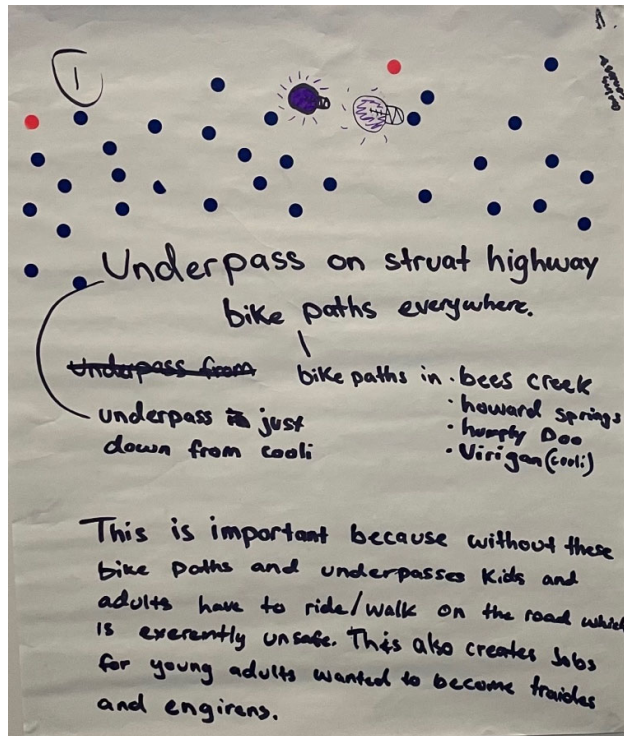 1
1.
Underpass on struat highway
bike paths everywhere.
Underpass from
bike paths in · bees creek
· howard springs
· humpty Doo
· Virigan (cooli)
underpass is just
down from cooli
This is important because without these
bike paths and underpasses kids and
adults have to ride/walk on the road which
is exerently unsafe. This also creates Jobs
for young adults wanted to become traides
and engirens.